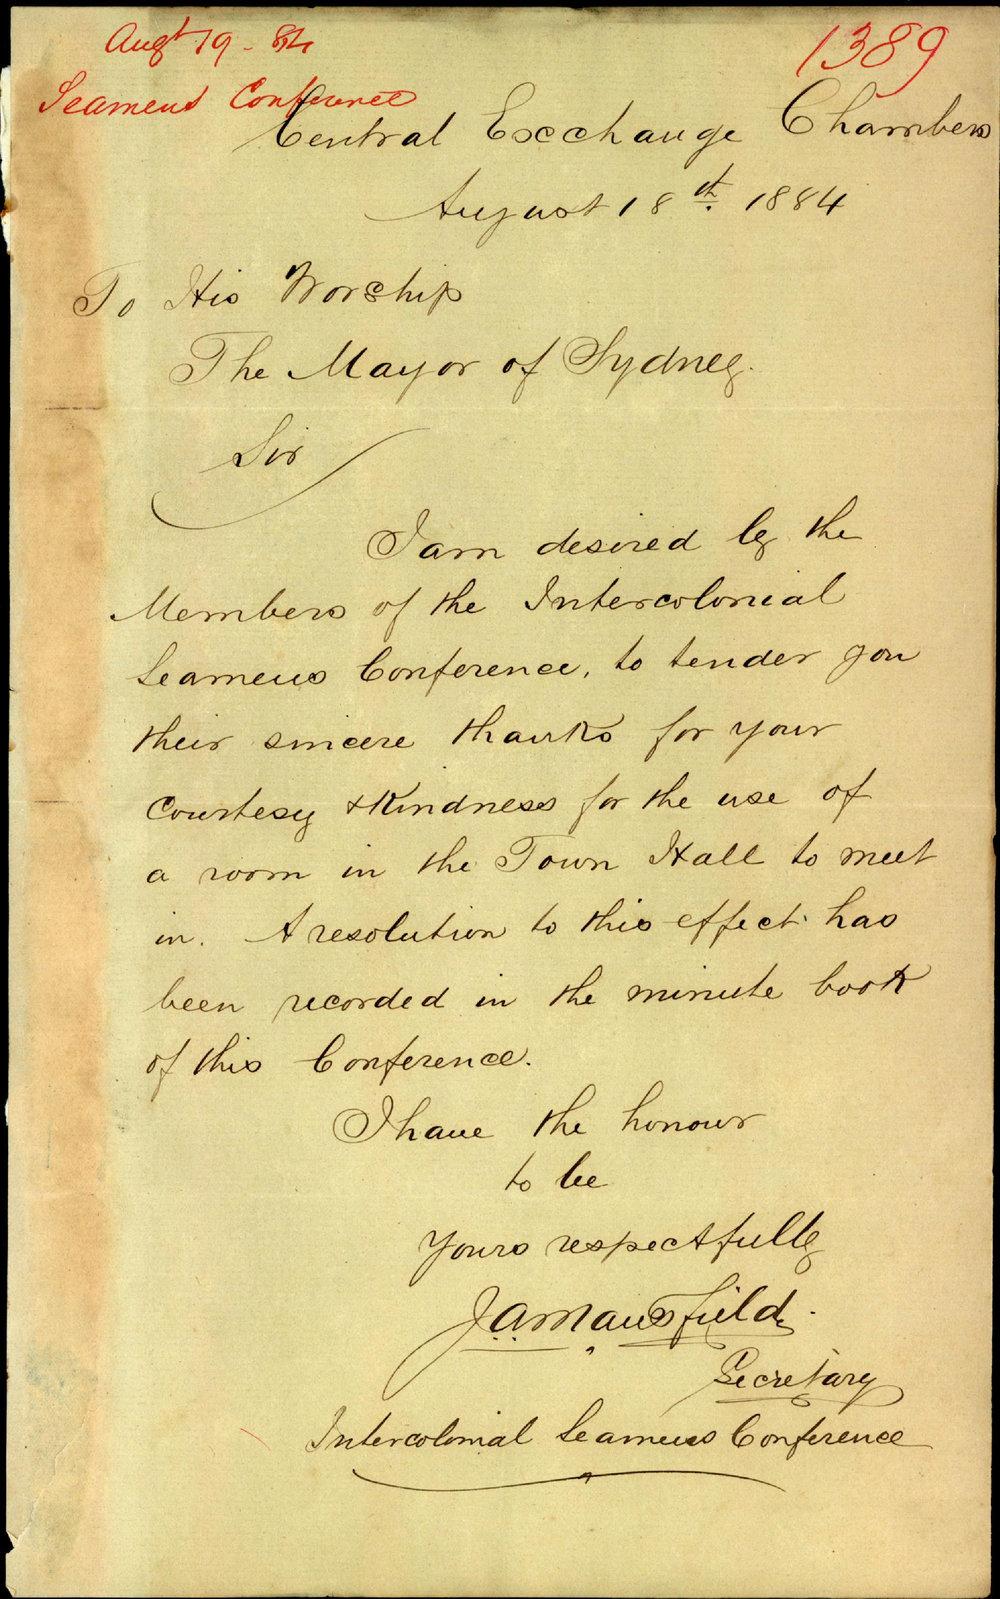 Augt 19 - 84
1389
Seamens Conference
Central Excchange Chambers
August 18th. 1884
To His Worship
The Mayor of Sydney.
Sir
I am desired by the
Members of the Intercolonial
Seamens Conference, to tender you
their sincere thanks for your
Courtesy + Kindness for the use of
a room in the Town Hall to meet
in. A resolution to this effect has
been recorded in the minute book
of this Conference.
I have the honour
to be
Yours respectfully
J. A. Mansfield.
Secretary
Intercolonial Seamens Conference